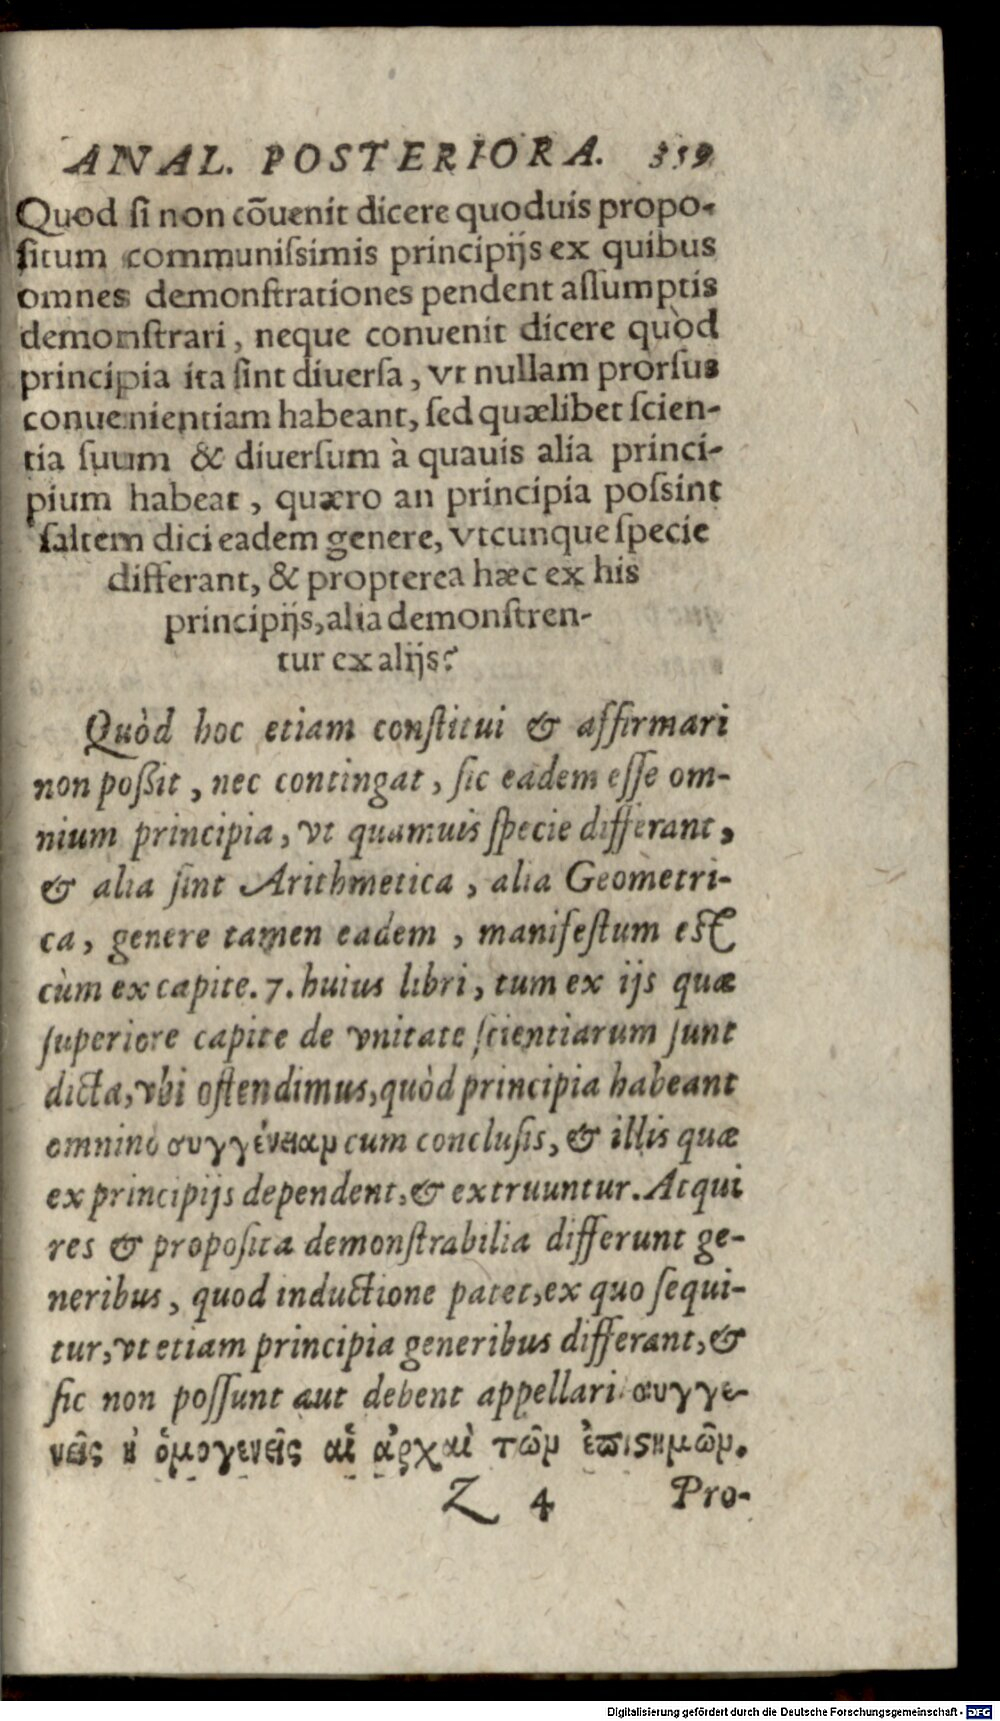 ANAL. POSTERIORA. 359
Quod ſi non cõuenit dicere quoduis propo-
ſitum communiſsimis principijs ex quibus
omnes demonſtrationes pendent aſſumptis
demonſtrari, neque conuenit dicere quòd
principia ita ſint diuerſa, vt nullam prorſus
conuenientiam habeant, ſed quælibet ſcien-
tia ſuum & diuerſum à quauis alia princi-
pium habeat, quæro an principia poſsint
ſaltem dici eadem genere, vtcunque ſpecie
differant, & propterea hæc ex his
principijs, alia demonſtren-
tur ex alijs?
Quòd hoc etiam conſtitui & affirmari
non poßit, nec contingat, ſic eadem eſſe om-
nium principia, vt quamuis ſpecie differant,
& alia ſint Arithmetica, alia Geometri-
ca, genere tamen eadem, manifeſtum eſt
cùm ex capite. 7. huius libri, tum ex ijs quæ
ſuperiore capite de vnitate ſcientiarum ſunt
dicta, vbi oſtendimus, quòd principia habeant
omnino συγγένειαν cum concluſis, & illis quæ
ex principijs dependent, & extruuntur. Atqui
res & propoſita demonſtrabilia differunt ge-
neribus, quod inductione patet, ex quo ſequi-
tur, vt etiam principia generibus differant, &
ſic non poſſunt aut debent appellari συγγε-
νεῖς ἢ ὁμογενεῖς αἱ ἀρχαὶ τῶν ἐπιϛημῶν.
Z 4 Pro-
Digitalisierung gefördert durch die Deutsche Forschungsgemeinschaft - DFG